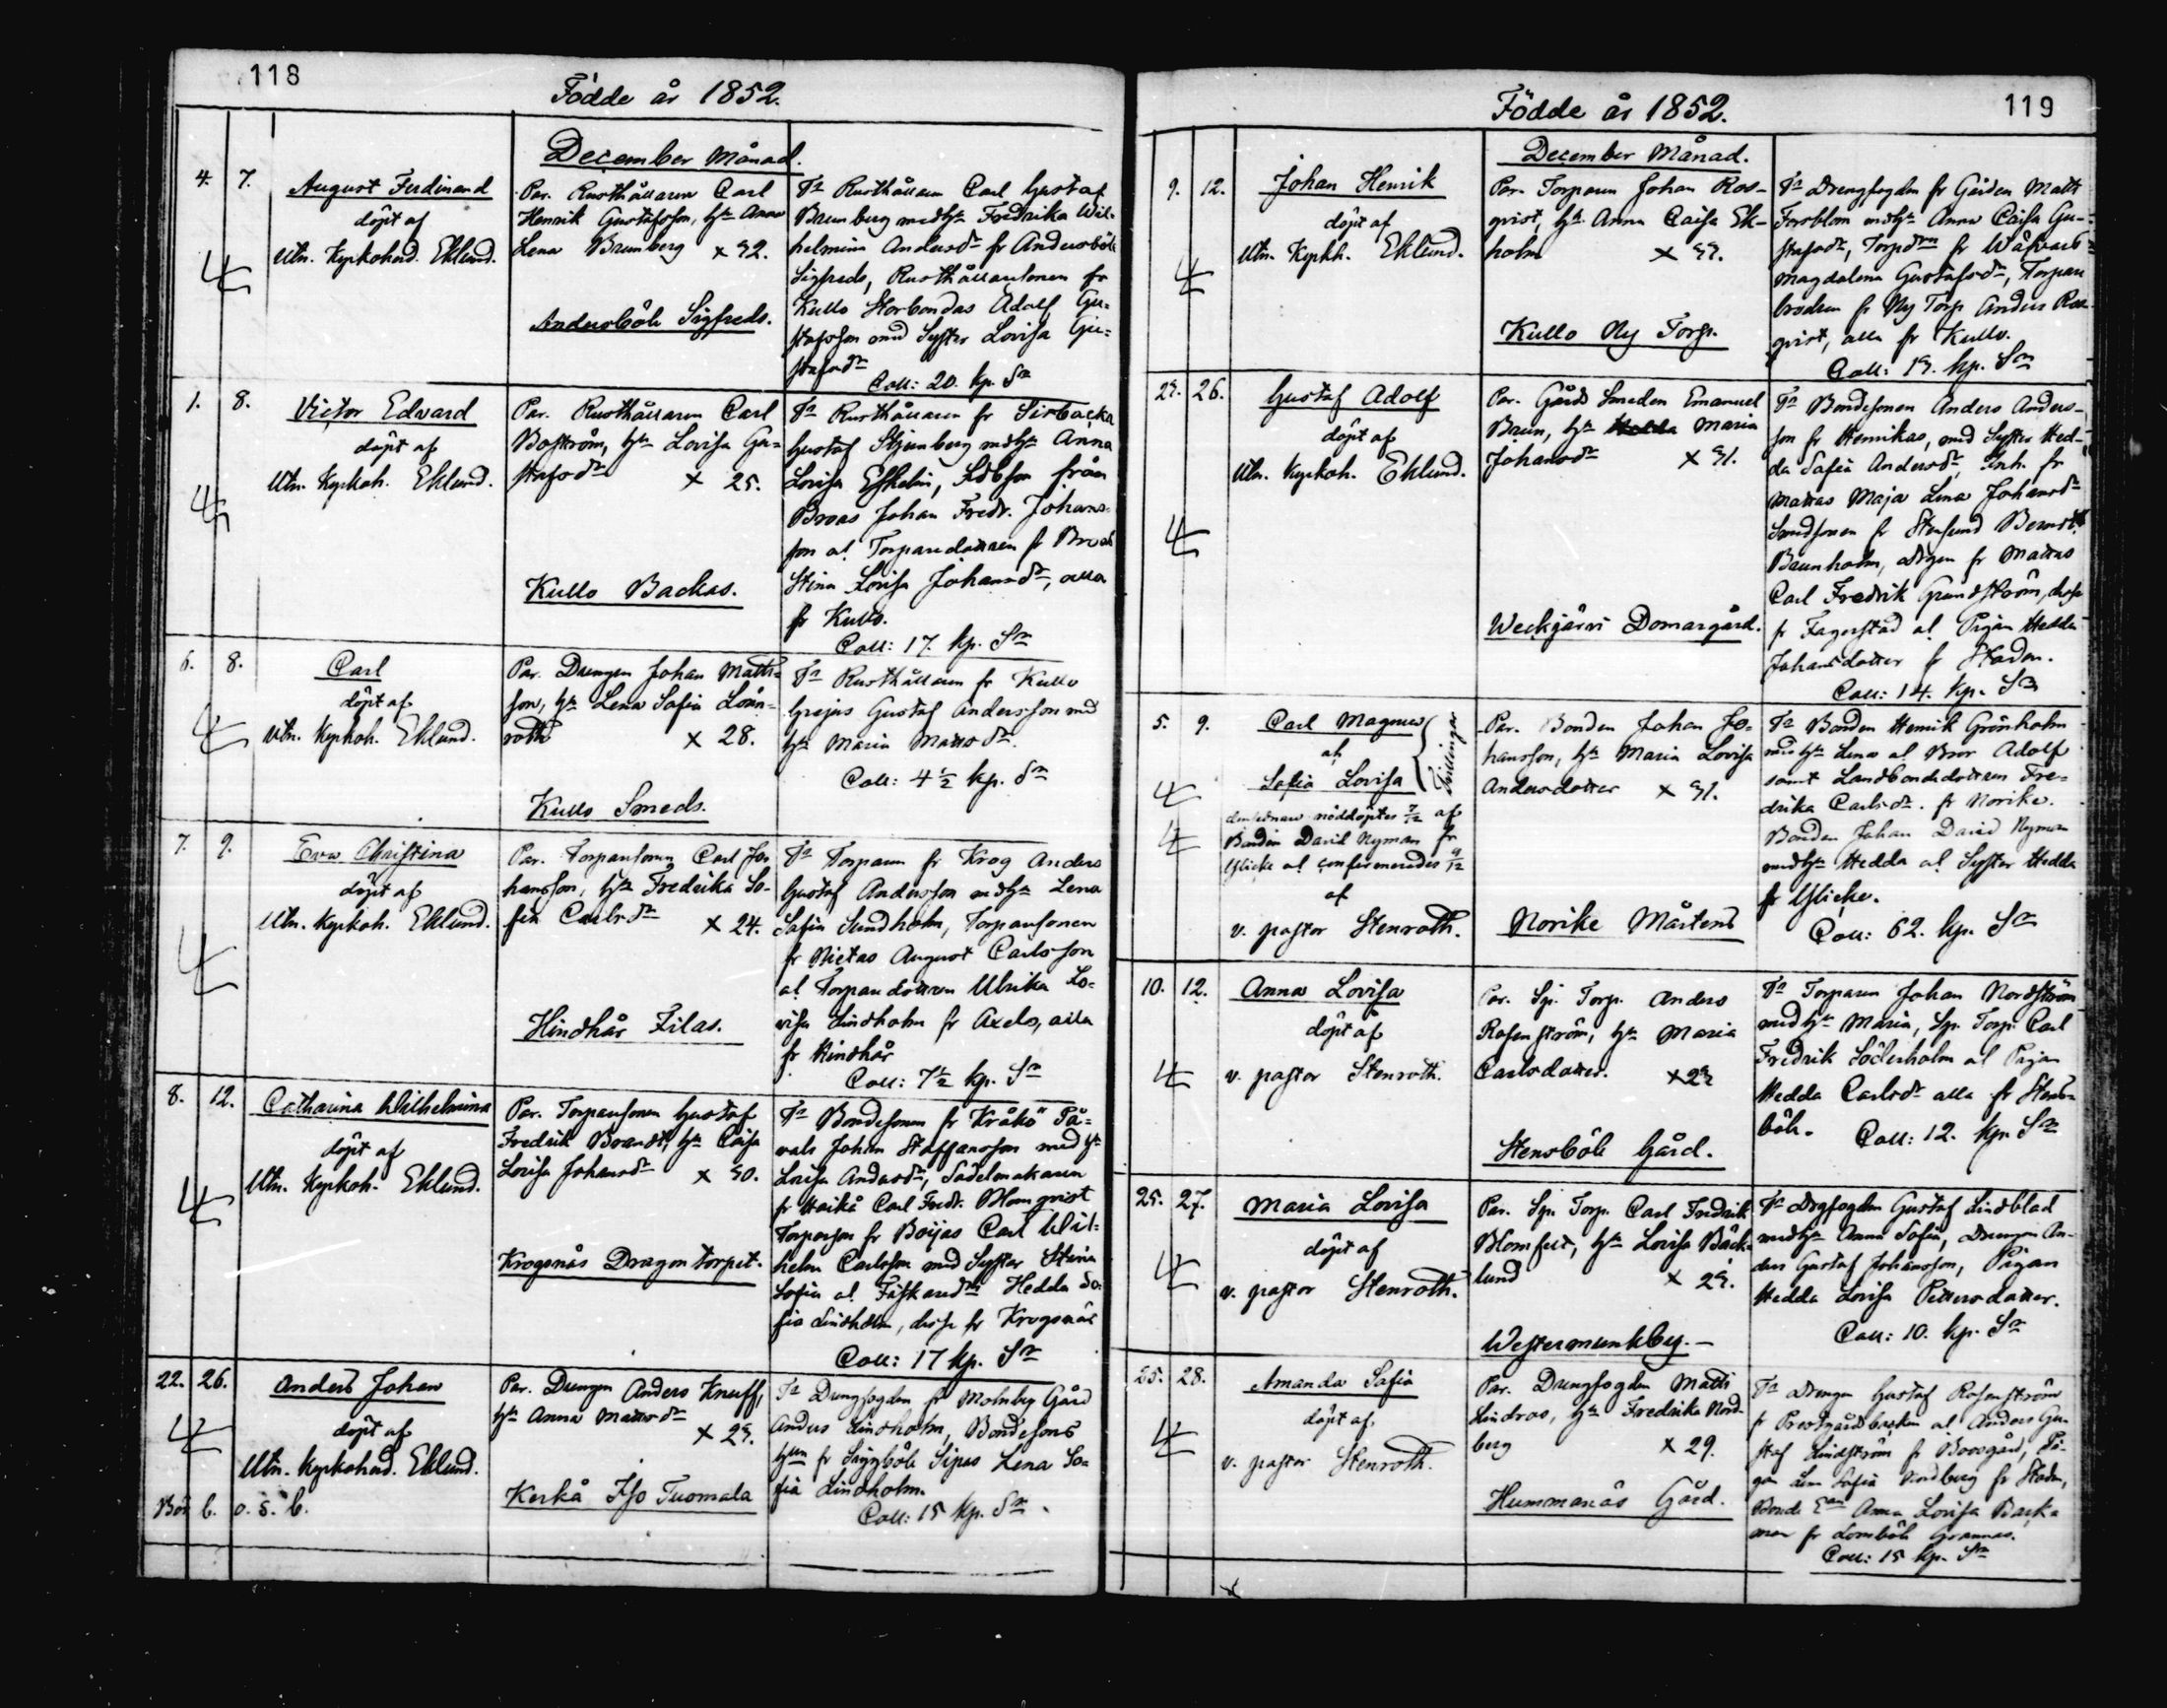 118
Födde år 1852.
December Månad.
4. 7. August Ferdinand
döpt af
Utn. Kyrkoherd. Eklund.
Par. Rusthållaren Carl
Henrik Gustafsson, h:n Anna
Lena Brunberg × 32.
Andersböle Sigfreds.
Fr Rusthållaren Carl Gustaf
Brunberg med h:n Fredrika Wil-
helmina Andersdr fr Andersböle
Sigfreds, Rusthållaresonen fr
Kullo Storbondas Adolf Gu-
stafsson med Syster Lovisa Gu-
stafsdr
Coll: 20. kp. Sr
1. 8. Victor Edvard
döpt af
Utn. Kyrkoh. Eklund.
Par. Rusthållaren Carl
Boström, h:n Lovisa Gu-
stafsdr × 25.
Kullo Backas.
Fr Rusthållaren fr Sirbacka
Gustaf Stjernberg med h:n Anna
Lovisa Eskelin, från
Broas Johan Fredr. Johans-
son o! Torparedottren fr Broas
Stina Lovisa Johansdr, alla
fr Kullo.
Coll: 17. kp. Sr
6. 8. Carl
döpt af
Utn. Kyrkoh. Eklund.
Par. Drengen Johan Matts-
son, h:n Lena Sofia Lönn-
roth × 28.
Kullo Smeds.
Fr Rusthållaren fr Kullo
Grejus Gustaf Andersson med
h:n Maria Mattsdr.
Coll: 4 1/2 kp. Sr
7. 9. Eva Christina
döpt af
Utn. Kyrkoh. Eklund.
Par. Torparesonen Carl Jo-
hansson, h:n Fredrika So-
fia Carlsdr × 24.
Hindhår Filas.
Fr Torparen fr Krog Anders
Gustaf Andersson med h:n Lena
Safia Sundholm, Torparesonen
fr Nietas August Carlsson
o! Torparedottren Ulrika Lo-
visa Lindholm fr Axels, alla
fr Hindhår
Coll: 7 1/2 kp. Sr
8. 12. Catharina Wilhelmina
döpt af
Utn. Kyrkoh. Eklund.
Par. Torparesonen Gustaf
Fredrik Brandt, h:n Caisa
Lovisa Johansdr × 30.
Krogsnäs Dragontorpet.
Fr Bondesonen fr Kråkö På-
wals Johan Staffansson med h:n
Lovisa Andersdr, Sadelmakaren
fr Haikå Carl Fredr. Blomqvist
Torpareson fr Boijas Carl Wil-
helm Carlsson med Syster Stina
Sofia o! Fiskaredr Hedda So-
fia Lindholm, dessa fr Krogsnäs
Coll: 17 kp. Sr
22. 26. Anders Johan
döpt af
Utn. Kyrkoherd. Eklund.
Bör b. o. s. b.
Par. Drengen Anders Knuff,
h:n Anna Mattsdr
× 23.
Kerkå Iso Tuomala
Fr Drengfogden fr Molnby Gård
Anders Lindholm, Bondesons
h:un fr Säggböle Sipas Lena So-
fia Lindholm.
Coll: 15 kp. Sr.
119
Födde år 1852.
December Månad.
9. 12. Johan Henrik
döpt af
Utn. Kyrkh. Eklund.
Par. Torparen Johan Ros-
qvist, h:n Anna Caisa Ek-
holm × 33.
Kullo Ny Torp.
Fr Drengfogden fr Gården Matts
Forsblom med h:n Anna Caisa Gu-
stafsdr, Torpdrn fr
Magdalena Gustafsdr, Torpare
brodren fr Ny Torp Anders Ros-
qvist, alla fr Kullo.
Coll: 13. kp. Sr
23. 26. Gustaf Adolf
döpt af
Utn. Kyrkoh. Eklund.
Par. Gårds Smeden Emanuel
Braun, h:n Maria
Johansdr × 31.
Weckjärvi Domargård.
Fr Bondesonen Anders Anders-
son fr Henrikas, med Syster Hed-
da Safia Andersdr, Inh. fr
Mattas Maja Lena Johansdr
Smedsonen fr Stensund Berndt
Braunholm, drgen fr Mattas
Carl Fredrik Grundström, dessa
fr Fagerstad o! Pigan Hedda
Johansdotter fr Staden.
Coll: 14. kp. Sr
5. 9. Carl Magnus
o!
Safia Lovisa
Tvillingar
densednare nöddöptes 7/12 af
Bonden David Nyman fr
Ylicke o! confirmerades 9/12
af
v. pastor Stenroth.
Par. Bonden Johan Jo-
hansson, h:n Maria Lovisa
Andersdotter × 31.
Norike Mårtens
Fr Bonden Henrik Grönholm
med h:n Lena o! Bror Adolf
samt Landbondedottren Fre-
drika Carlsdr. fr Norike.
Bonden Johan David Nyman
med h:n Hedda o! Syster Hedda
fr Ylicke.
Coll: 62. kp. Sr
10. 12. Anna Lovisa
döpt af
v. pastor Stenroth.
Par. Sp. Torp. Anders
Rosenström, h:n Maria
Carlsdotter. × 23
Stensböle Gård.
Fr Torparen Johan Nordström
med h:n Maria, Sp. Torp. Carl
Fredrik Söderholm o! Pigan
Hedda Carlsdr alla fr Stens-
böle. Coll: 12. kp. Sr
25. 27. Maria Lovisa
döpt af
v. pastor Stenroth.
Par. Sp. Torp. Carl Fredrik
Blomfelt, h:n Lovisa Bäck-
lund × 23.
Westermunkby.
Fr Drgfogden Gustaf Lindblad
med h:n Anna Sofia, Drengen An-
ders Gustaf Johansson, Pigan
Hedda Lovisa Pettersdotter.
Coll: 10. kp. Sr
25. 28. Amanda Safia
döpt af.
v. pastor Stenroth.
Par. Drengfogden Matts
Lindroos, h:n Fredrika Nord-
berg × 29.
Hummanäs Gård.
Fr Drengen Gustaf Rosenström
fr Prestgårdsbacken o! Anders Gu-
staf Lindström fr Boesgård, Pi-
gan Lena Safia Lindberg fr Staden,
Bonde Anna Lovisa Back-
man fr Lomböle Grannas.
Coll: 15 kp. Sr